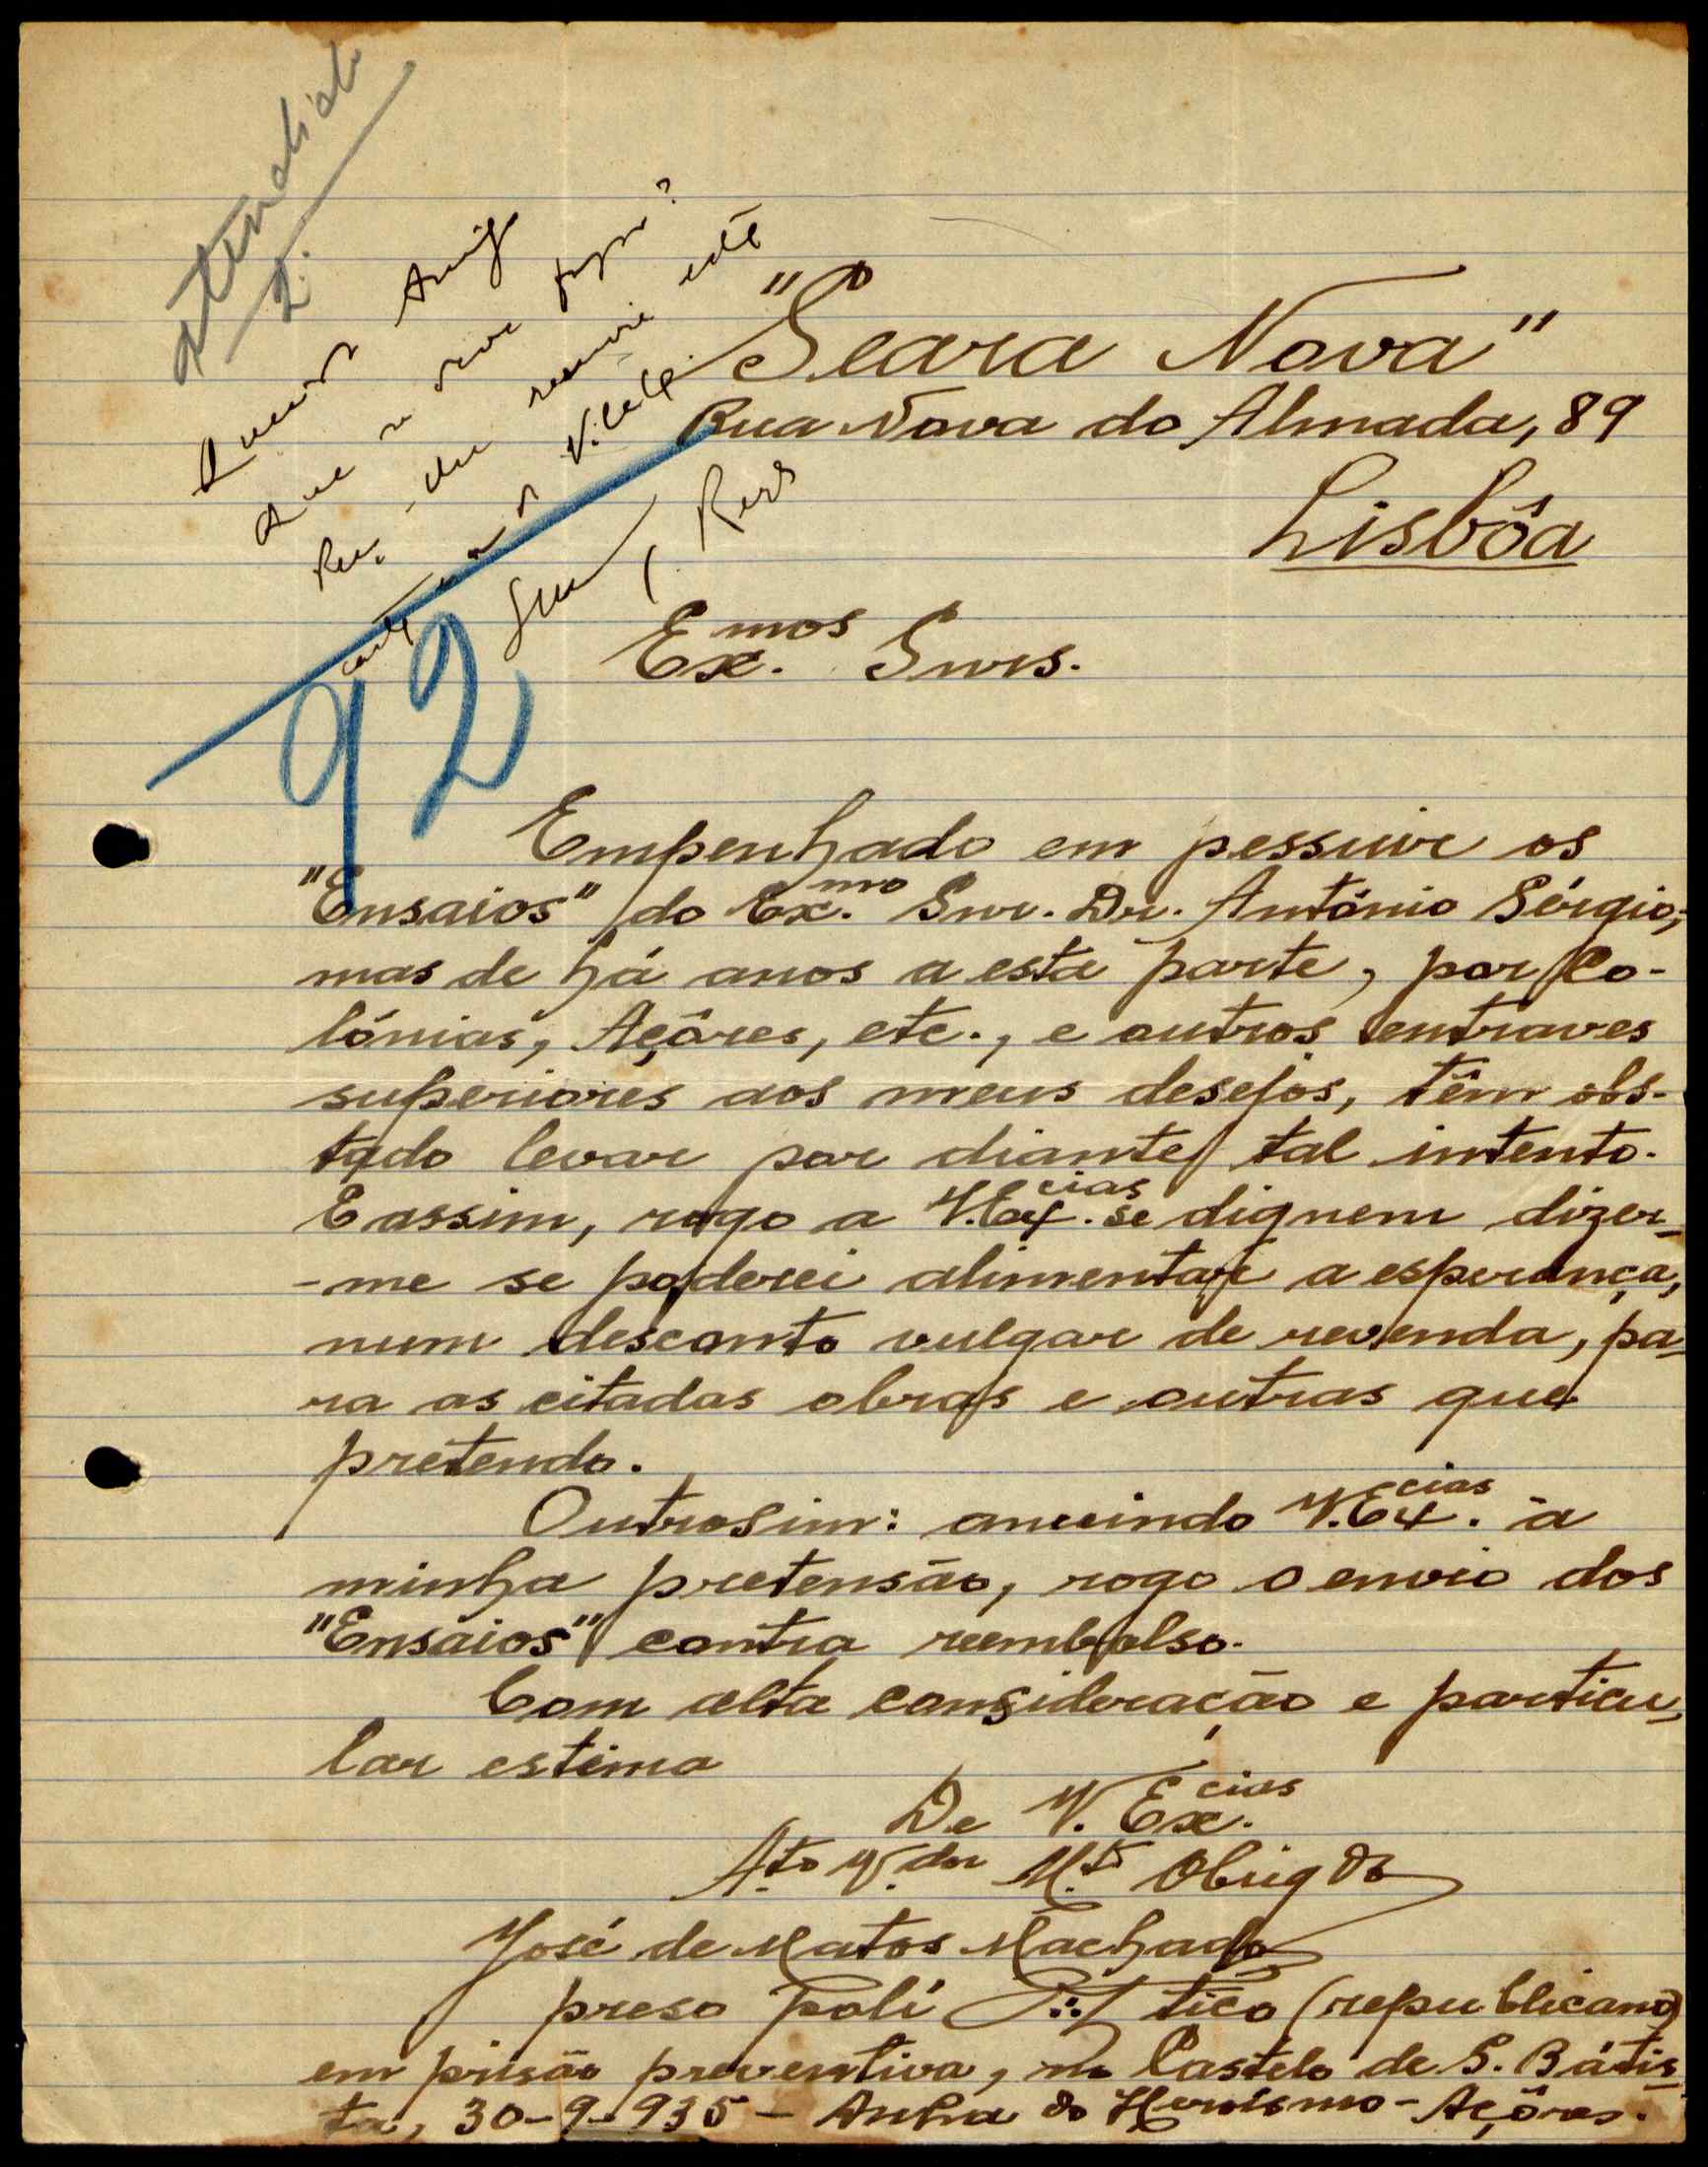 atendido
Que se deve fazer?
"Seara Nova"
Rua Nova do Almada, 89
Lisbôa
92
Ex.mos Snrs.
Empenhado em pessuir os
"Ensaios" do Ex.mo Snr. Dr. António Sérgio,
mas de há anos a esta parte, por Co-
lónias, Açôres, etc., e outros entraves
superiores aos meus desejos, têm obs-
tado levar por diante tal intento.
E assim, rogo a V. Ex.cias se dignem dizer-
-me se poderei alimentar a esperança,
num desconto vulgar de revenda, pa-
ra as citadas obras e outras que
pretendo.
Outrosim: anuindo V. Ex.cias à
minha pretensão, rogo o envio dos
"Ensaios" contra reembolso.
Com alta consideração e particu-
lar estima
De V. Ex.cias
At.to V.dor M.to Obrigdo
José de Matos Machado
preso polí ∴ tico (republicano)
em prisão preventiva, no Castelo de S. Bátis-
ta, 30-9-935 - Anhra do Heroísmo - Açôres.